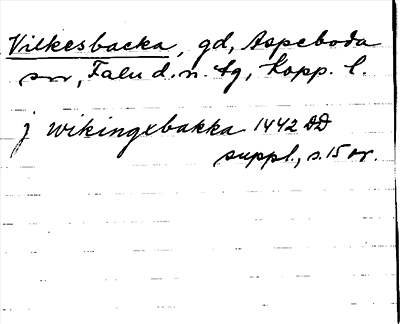 Vilkesbacka, gd, Aspeboda
sn, Falu d. n. tg, Kopp. l.
j wikingxbakka 1442 DD
suppl., s. 15 or.